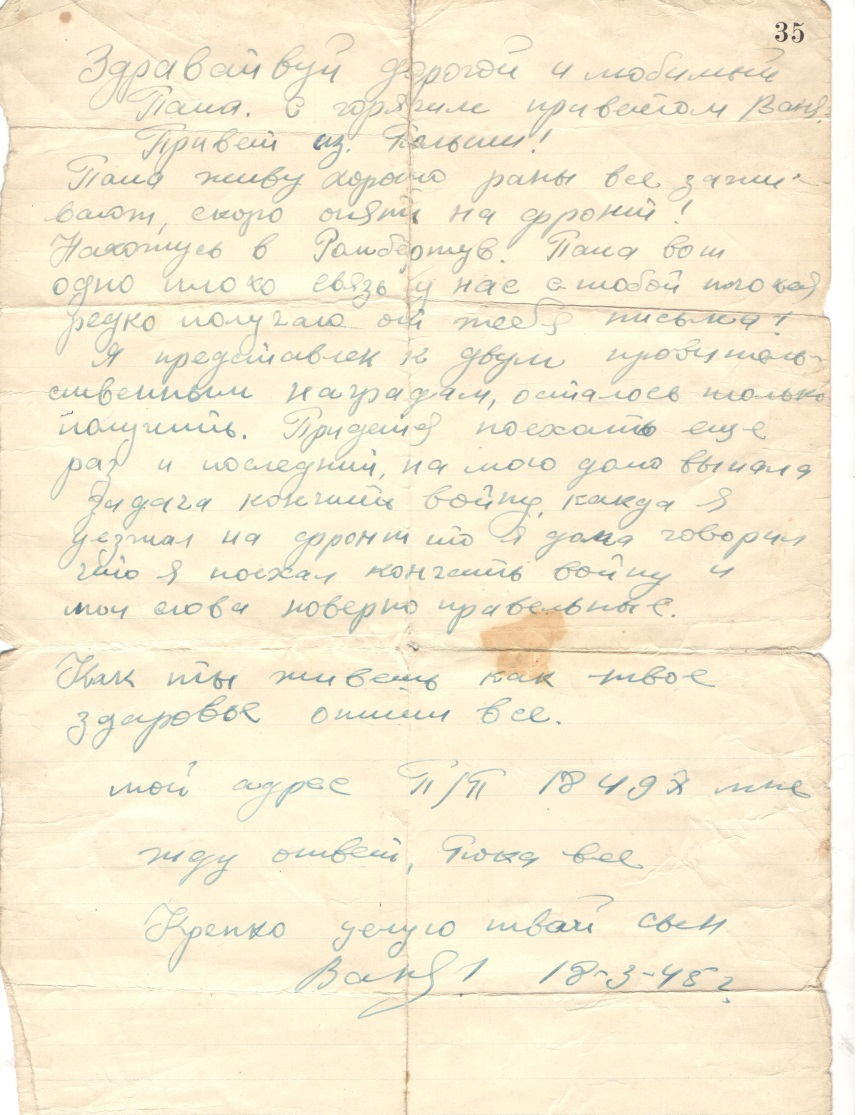 35
Здравайвуй дорогой и любимый
Папа. С горячим приветом Ваня.
Привет из. Польши!
Папа живу хорошо раны все зажи-
вают, скоро опять на фронт!
Нахожусь в Рамбертув. Папа вот
одно плохо связь у нас с тобой плохая
редко получаю от тебя письма!
Я представлен к двум правитель-
ственным наградам, осталось только
получить. Придется поехать еще
раз и последний, на мою долю выпала
задача кончить войну, какда я
уезжал на фронт то я дома говорил
что я поехал кончать войну и
мои слова новерно правельные.
Как ты живешь как твое
здаровье опиши все.
мой адрес П/П 18497 мне
жду ответ, Пока все
Крепко целую твай сын
Ваня! 18-3-45 г.